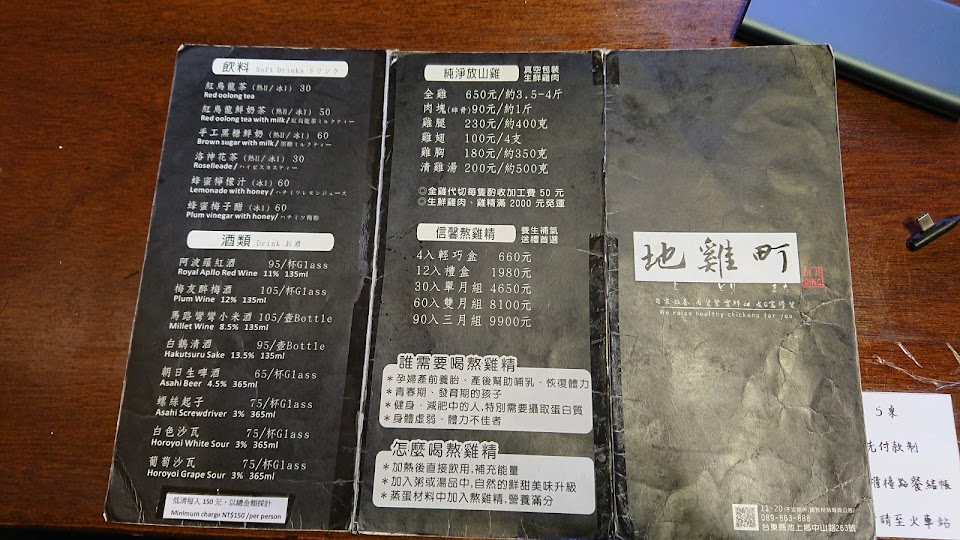 飲料 Soft Drinks ドリンク
紅烏龍茶 (熱H/冰I) 30
Red oolong tea
紅烏龍鮮奶茶 (熱H/冰I) 50
Red oolong tea with milk/紅烏龍ミルクティー
手工黑糖鮮奶 (熱H/冰I) 60
Brown sugar with milk/黒糖ミルクティー
洛神花茶 (熱H/冰I) 30
Roselleade/ハイビスカスティー
蜂蜜檸檬汁 (冰I) 60
Lemonade with honey/ハチミツレモンジュース
蜂蜜梅子醋 (冰I) 60
Plum vinegar with honey/ハチミツ梅酢
酒類 Drink お酒
阿波羅紅酒 95/杯Glass
Royal Apllo Red Wine 11% 135ml
梅友醉梅酒 105/杯Glass
Plum Wine 12% 135ml
馬路彎彎小米酒 105/壺Bottle
Millet Wine 8.5% 135ml
白鶴清酒 95/壺Bottle
Hakutsuru Sake 13.5% 135ml
朝日生啤酒 65/杯Glass
Asahi Beer 4.5% 365ml
螺絲起子 75/杯Glass
Asahi Screwdriver 3% 365ml
白色沙瓦 75/杯Glass
Horoyoi White Sour 3% 365ml
葡萄沙瓦 75/杯Glass
Horoyoi Grape Sour 3% 365ml
低消每人 150 元，以總金額採計
Minimum charge NT$150 /per person
純淨放山雞 真空包裝
生鮮雞肉
全雞 650元/約3.5-4斤
肉塊(碎骨)90元/約1斤
雞腿 230元/約400克
雞翅 100元/4支
雞胸 180元/約350克
清雞湯 200元/約500克
◎全雞代切每隻酌收加工費 50 元
◎生鮮雞肉、雞精滿 2000 元免運
信馨熬雞精 養生補氣
送禮首選
4入輕巧盒 660元
12入禮盒 1980元
30入單月組 4650元
60入雙月組 8100元
90入三月組 9900元
誰需要喝熬雞精
*孕婦產前養胎、產後幫助哺乳、恢復體力
*青春期、發育期的孩子
*健身、減肥中的人,特別需要攝取蛋白質
*身體虛弱、體力不佳者
怎麼喝熬雞精
*加熱後直接飲用,補充能量
*加入粥或湯品中,自然的鮮甜美味升級
*蒸蛋材料中加入熬雞精,營養滿分
地雞町
We raise healthy chickens for you
11-20
089-863-888
台東縣池上鄉中山路263號
5桌
先付款制
櫃檯點餐結帳
請至火車站